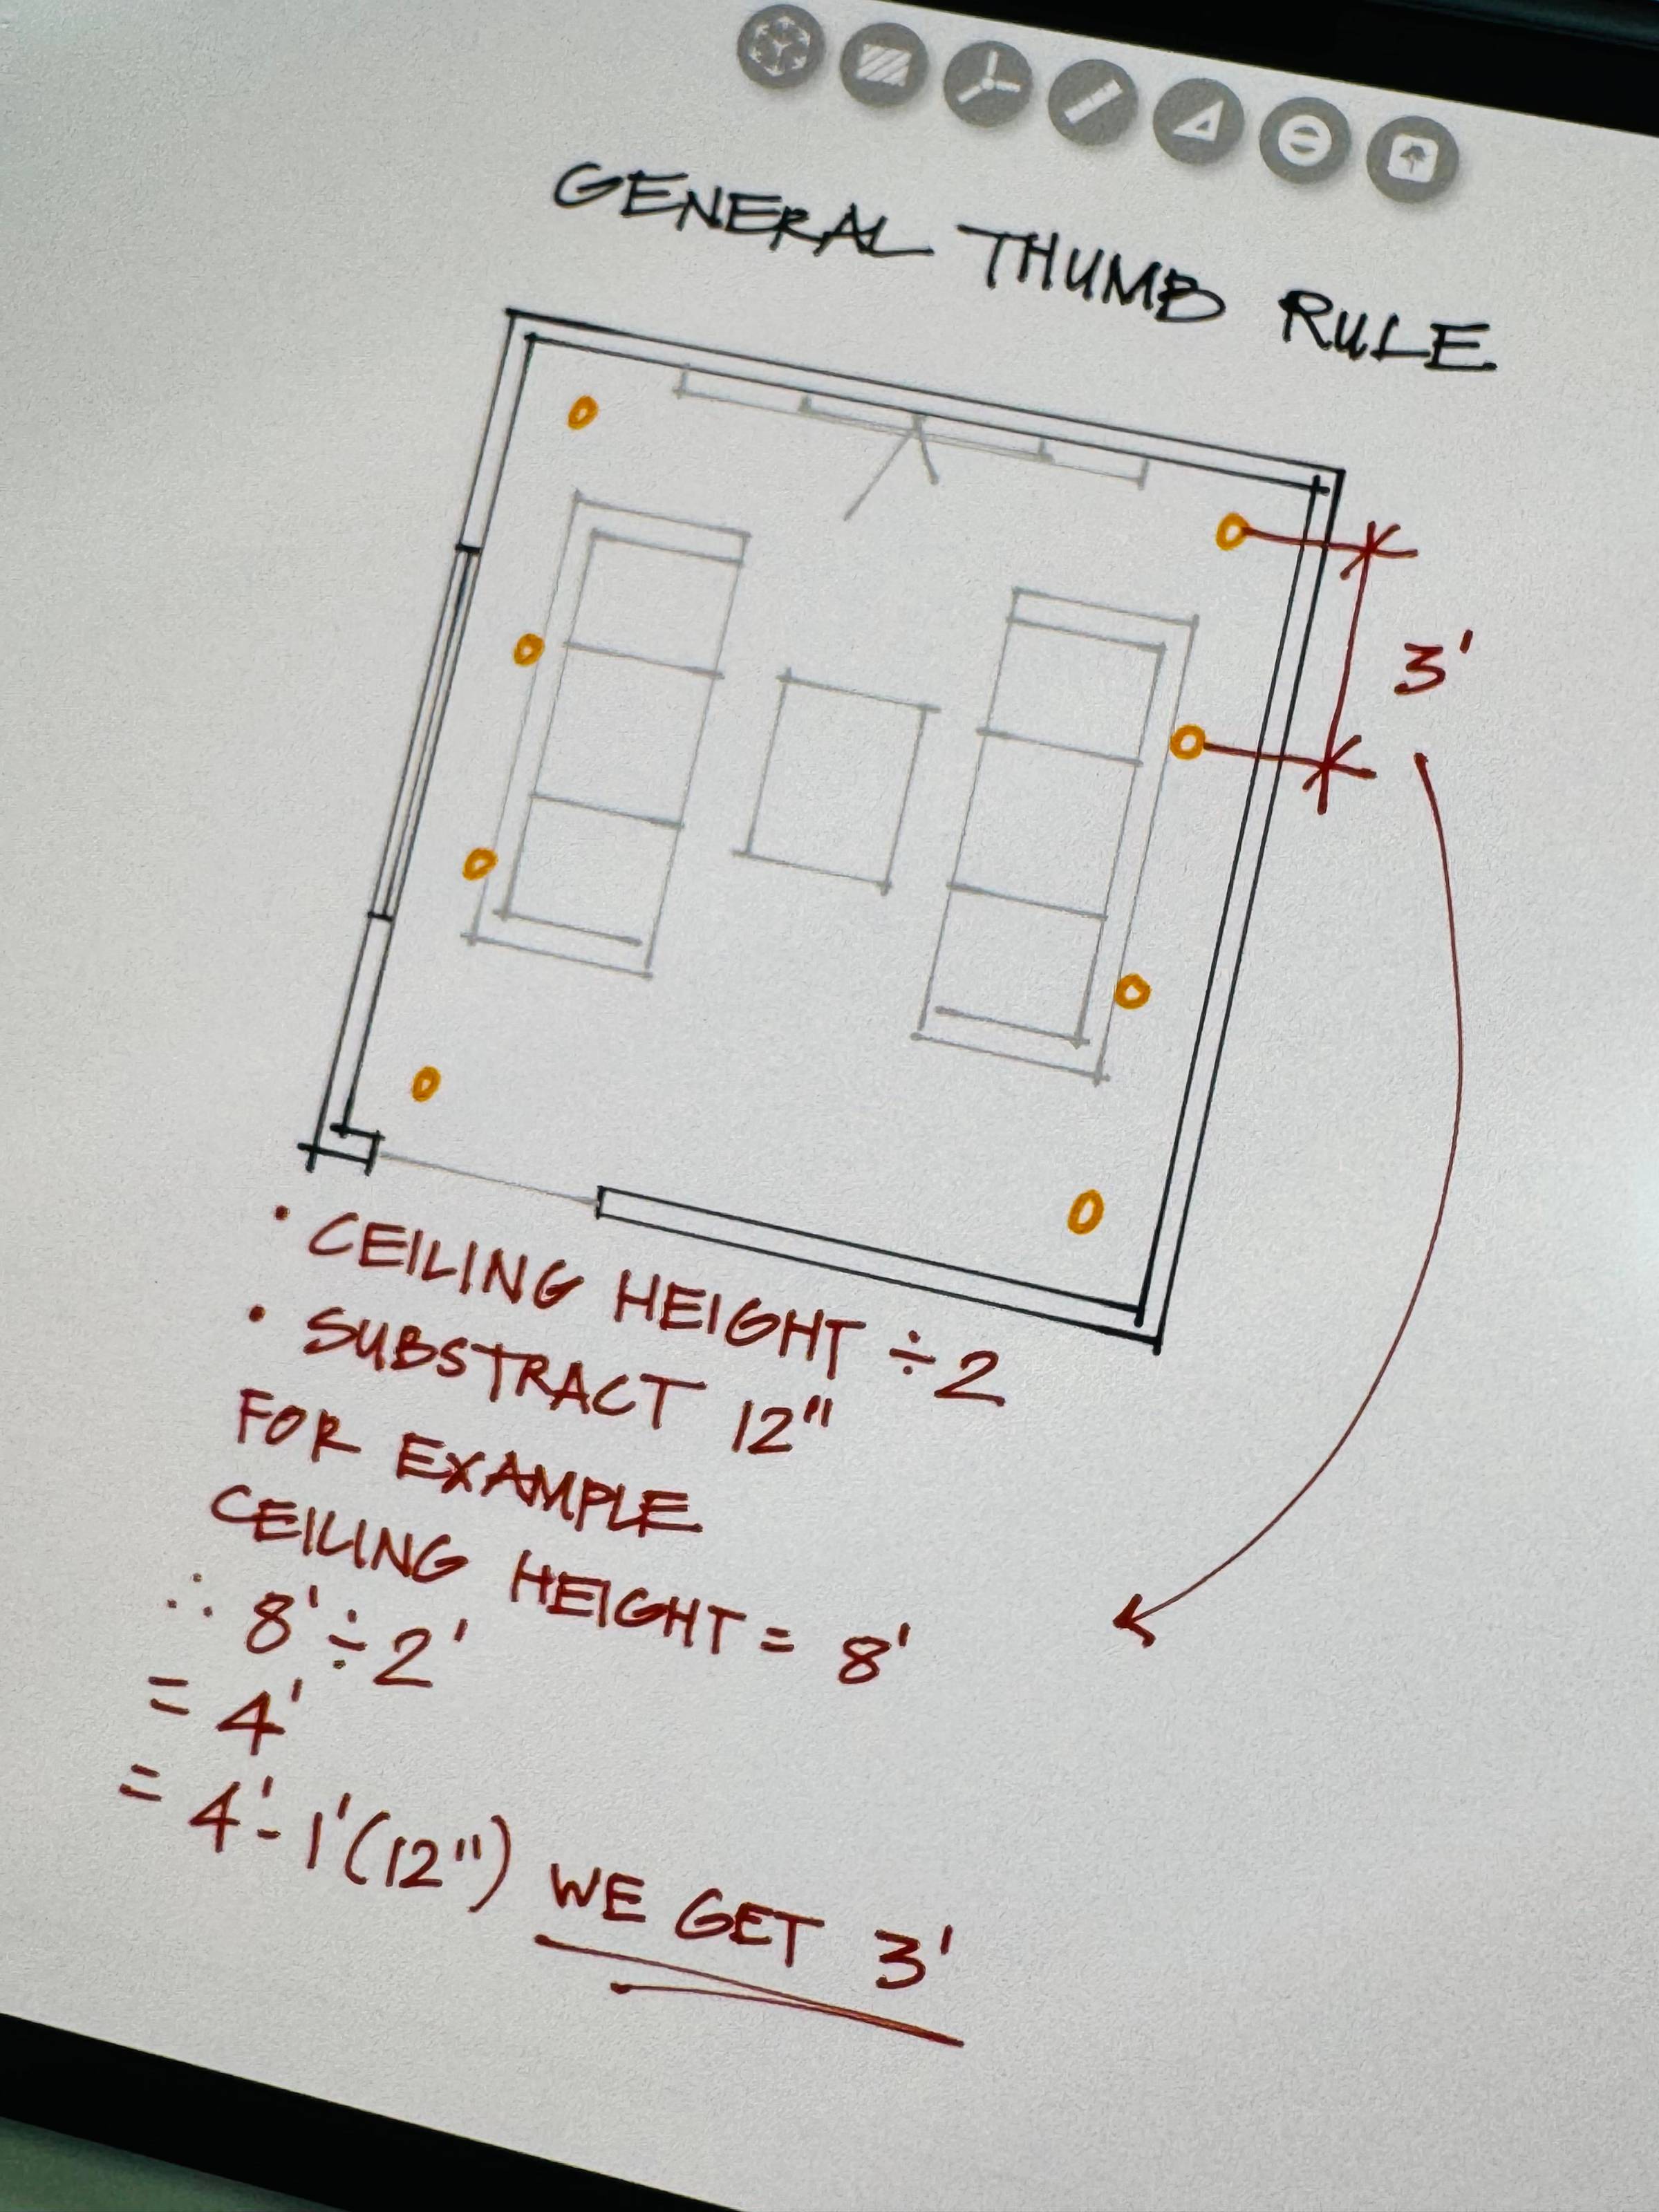 GENERAL THUMB RULE
3'
• CEILING HEIGHT ÷ 2
• SUBSTRACT 12"
FOR EXAMPLE
CEILING HEIGHT = 8'
∴ 8' ÷ 2'
= 4'
= 4' - 1' (12") WE GET 3'